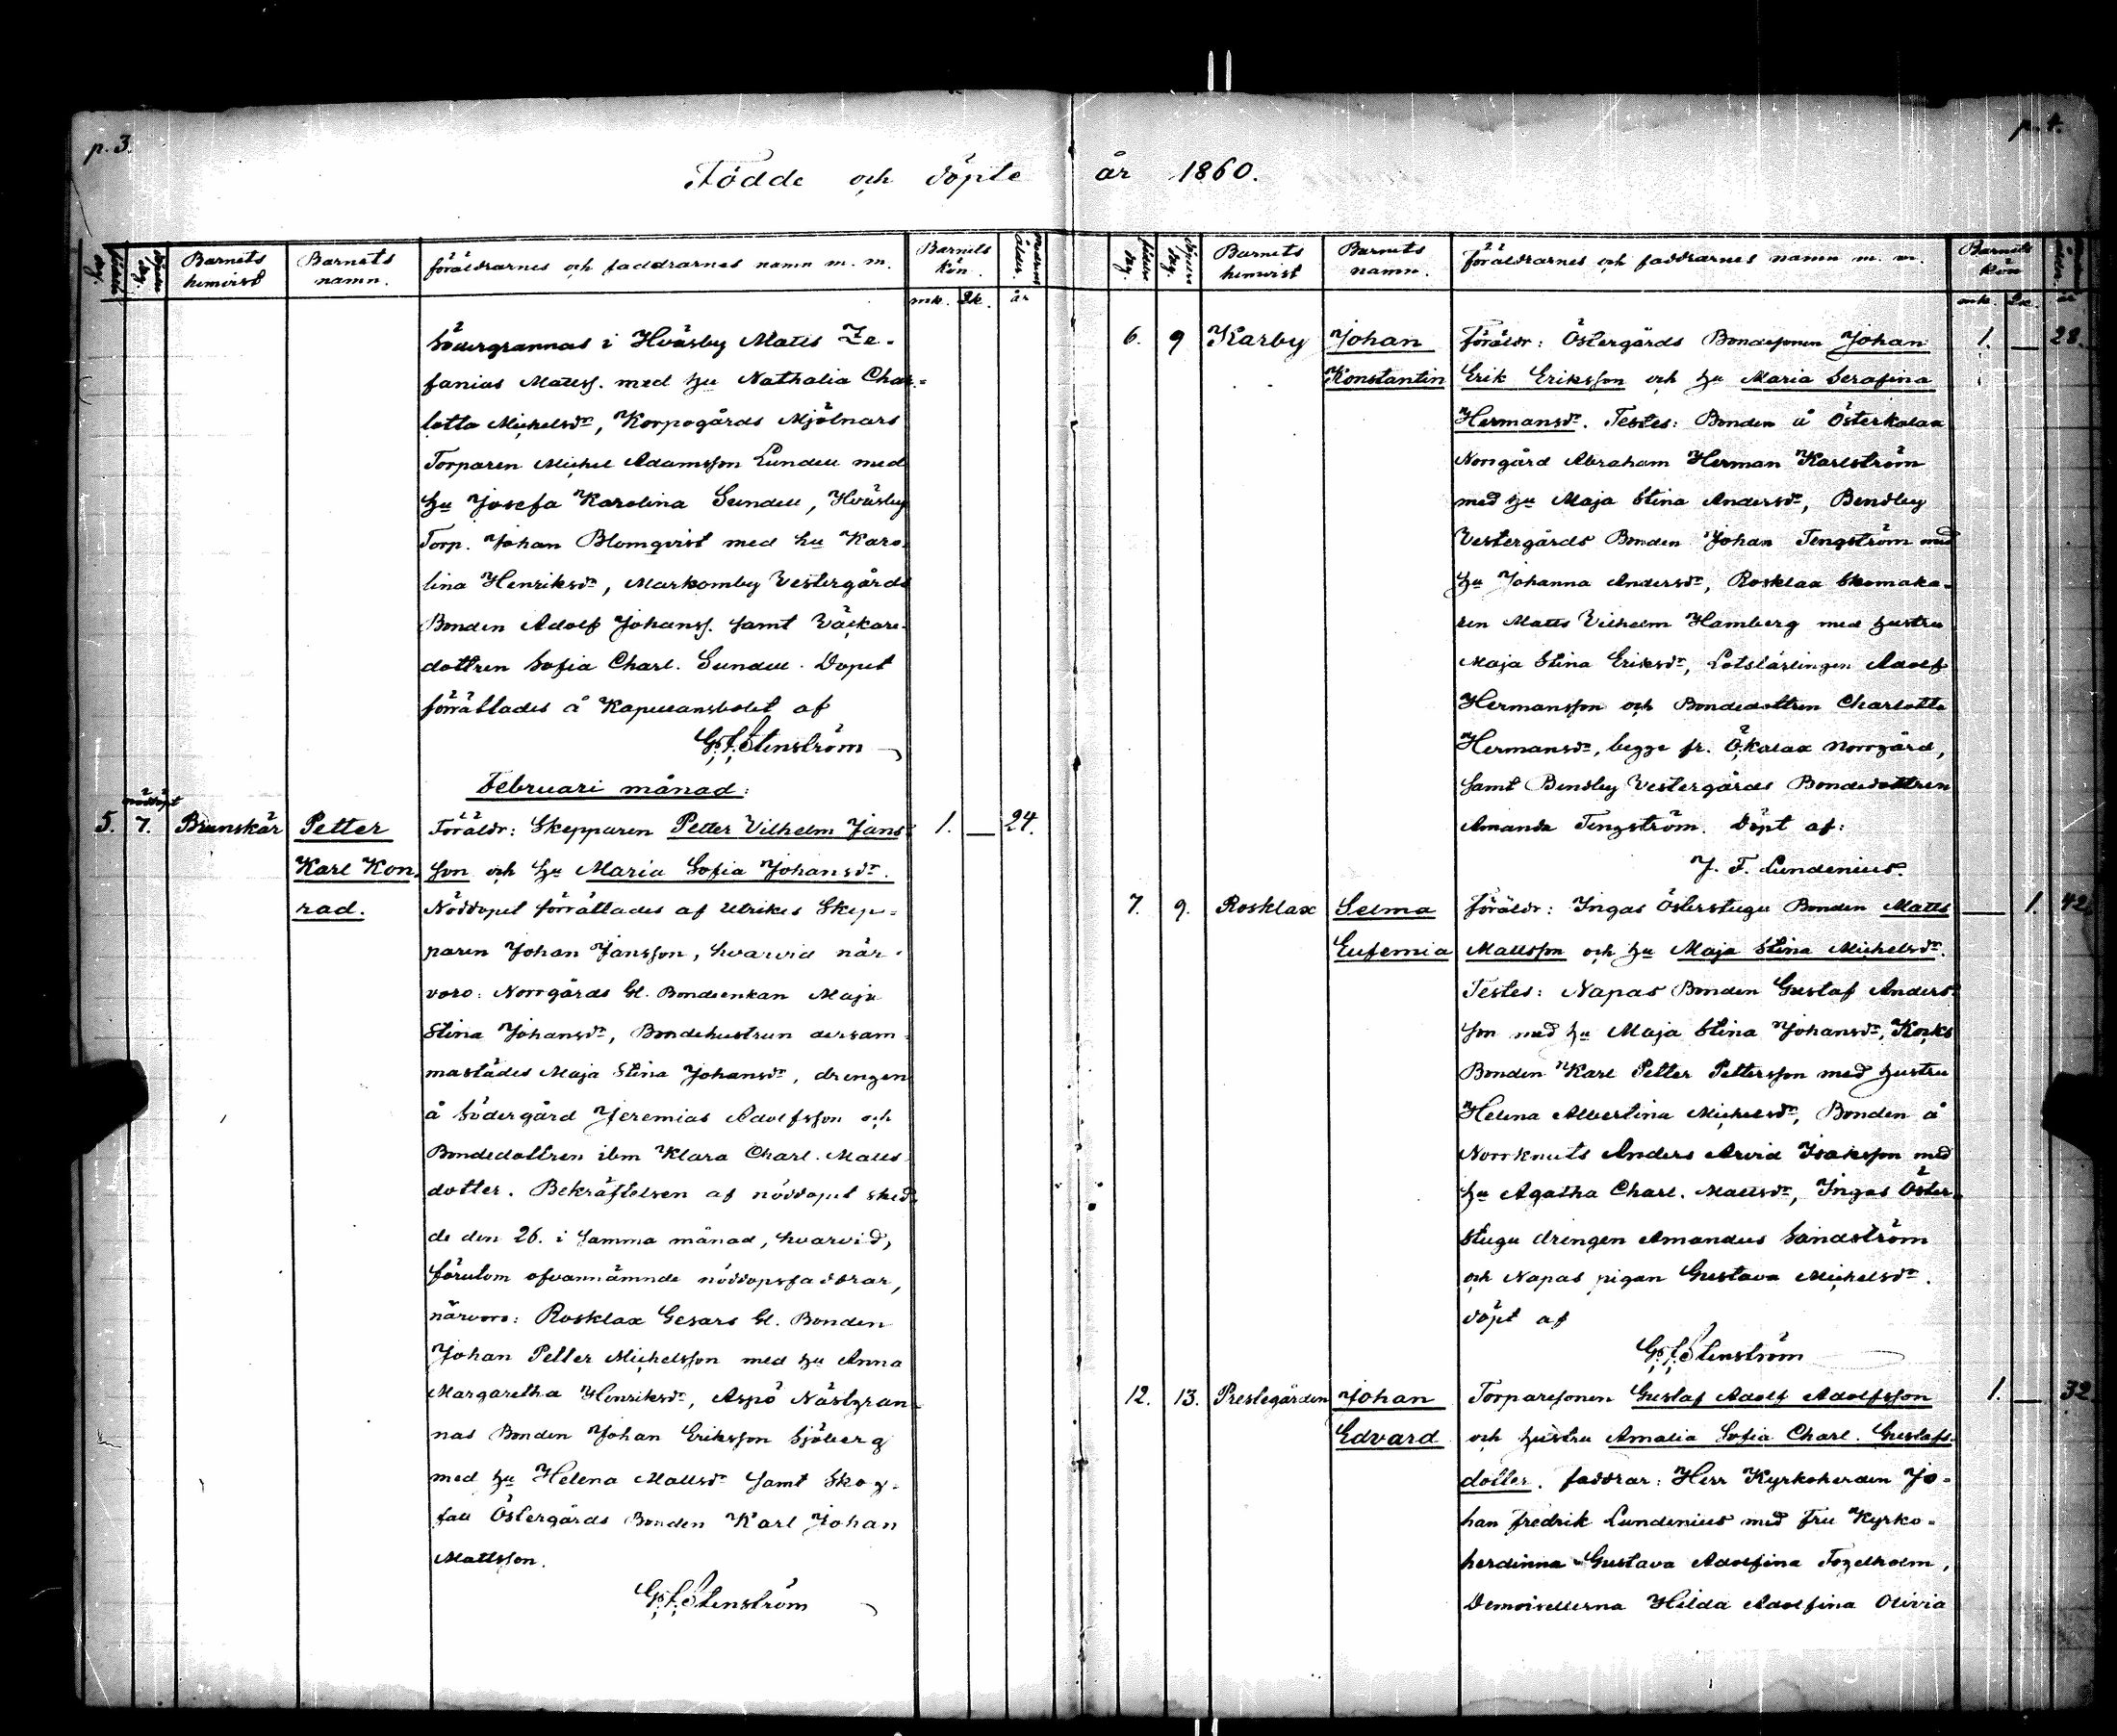 p. 3.
p. 4.
Födde och döpte år 1860.
Barnets hemvist
Barnets namn.
föräldrarnes och faddrarnes namn m. m.
Barnets kön.
mk. Qk. år
Södergrannas i Hväsby Matts Ze-
fanias Matts. med hu Nathalia Char-
lotta Michelsdr, Korpogårds Mjölnars
Torparen Michel Adamsson Lundell med
hu Josefa Karolina Sundell, Hväsby
Torp. Johan Blomqvist med hu Karo-
lina Henriksdr, Markomby Vestergårds
Bonden Adolf Johans. samt Väckare-
dottren Sofia Charl. Sundell. Dopet
förrättades å Kapellansbolet af
G. F. Stenström
Februari månad:
nöddöpt
5. 7. Brunskär Petter Föräldr: Skepparen Petter Vilhelm Jans- 1. — 24.
Karl Kon- son och hu Maria Sofia Johansdr.
rad. Nöddopet förrättades af Utrikes Skep-
paren Johan Jansson, hvarvid när-
voro: Norrgårds Gl. Bondeenkan Maja
Stina Johansdr, Bondehustrun dersam-
mastädes Maja Stina Johansdr, drengen
å Södergård Jeremias Adolfsson och
Bondedottren ibm Klara Charl. Matts-
dotter. Bekräftelsen af nöddopet sked-
de den 26. i samma månad, hvarvid,
förutom ofvannämnde nöddopsfaddrar,
närvoro: Rosklax Gesars Gl. Bonden
Johan Petter Michelsson med hu Anna
Margaretha Henriksdr, Aspö Nästgran-
nas Bonden Johan Eriksson Sjöberg
med hu Helena Mattsdr samt Skog-
fall Östergårds Bonden Karl Johan
Mattsson.
G. F. Stenström
Barnets hemvist
Barnets namn.
föräldrarnes och faddrarnes namn m. m.
Barnets kön
mk. Qk. år
6. 9 Karby Johan Föräldr: Östergårds Bondesonen Johan 1. — 28.
Konstantin Erik Eriksson och hu Maria Serafina
Hermansdr. Testes: Bonden å Österkalax
Norrgård Abraham Herman Karlström
med hu Maja Stina Andersdr, Bendby
Vestergårds Bonden Johan Tengström med
hu Johanna Andersdr, Rosklax Skomaka-
ren Matts Vilhelm Hamberg med hustru
Maja Stina Eriksdr, Lotslärlingen Adolf
Hermansson och Bondedottren Charlotta
Hermansdr, begge fr. Ö.kalax Norrgård,
samt Bendby Vestergårds Bondedottren
Amanda Tengström. Döpt af:
J. F. Lundenius.
7. 9. Rosklax Selma föräldr: Ingas Österstugu Bonden Matts — 1. 42.
Eufemia Mattsson och hu Maja Stina Michelsdr.
Testes: Napas Bonden Gustaf Anders-
son med hu Maja Stina Johansdr, Kocks
Bonden Karl Petter Pettersson med hustru
Helena Albertina Michelsdr, Bonden å
Norrknuts Anders Arvid Isaksson med
hu Agatha Charl. Mattsdr, Ingas Öster-
stugu drengen Amandus Sandström
och Napas pigan Gustava Michelsdr.
döpt af
G. F. Stenström
12. 13. Prestegården Johan Torparesonen Gustaf Adolf Adolfsson 1. — 32
Edvard och hustru Amalia Sofia Charl. Gustafs-
dotter. faddrar: Herr Kyrkoherden Jo-
han Fredrik Lundenius med Fru Kyrko-
herdinna Gustava Adolfina Fogelholm,
Demoisellerna Hilda Adolfina Olivia